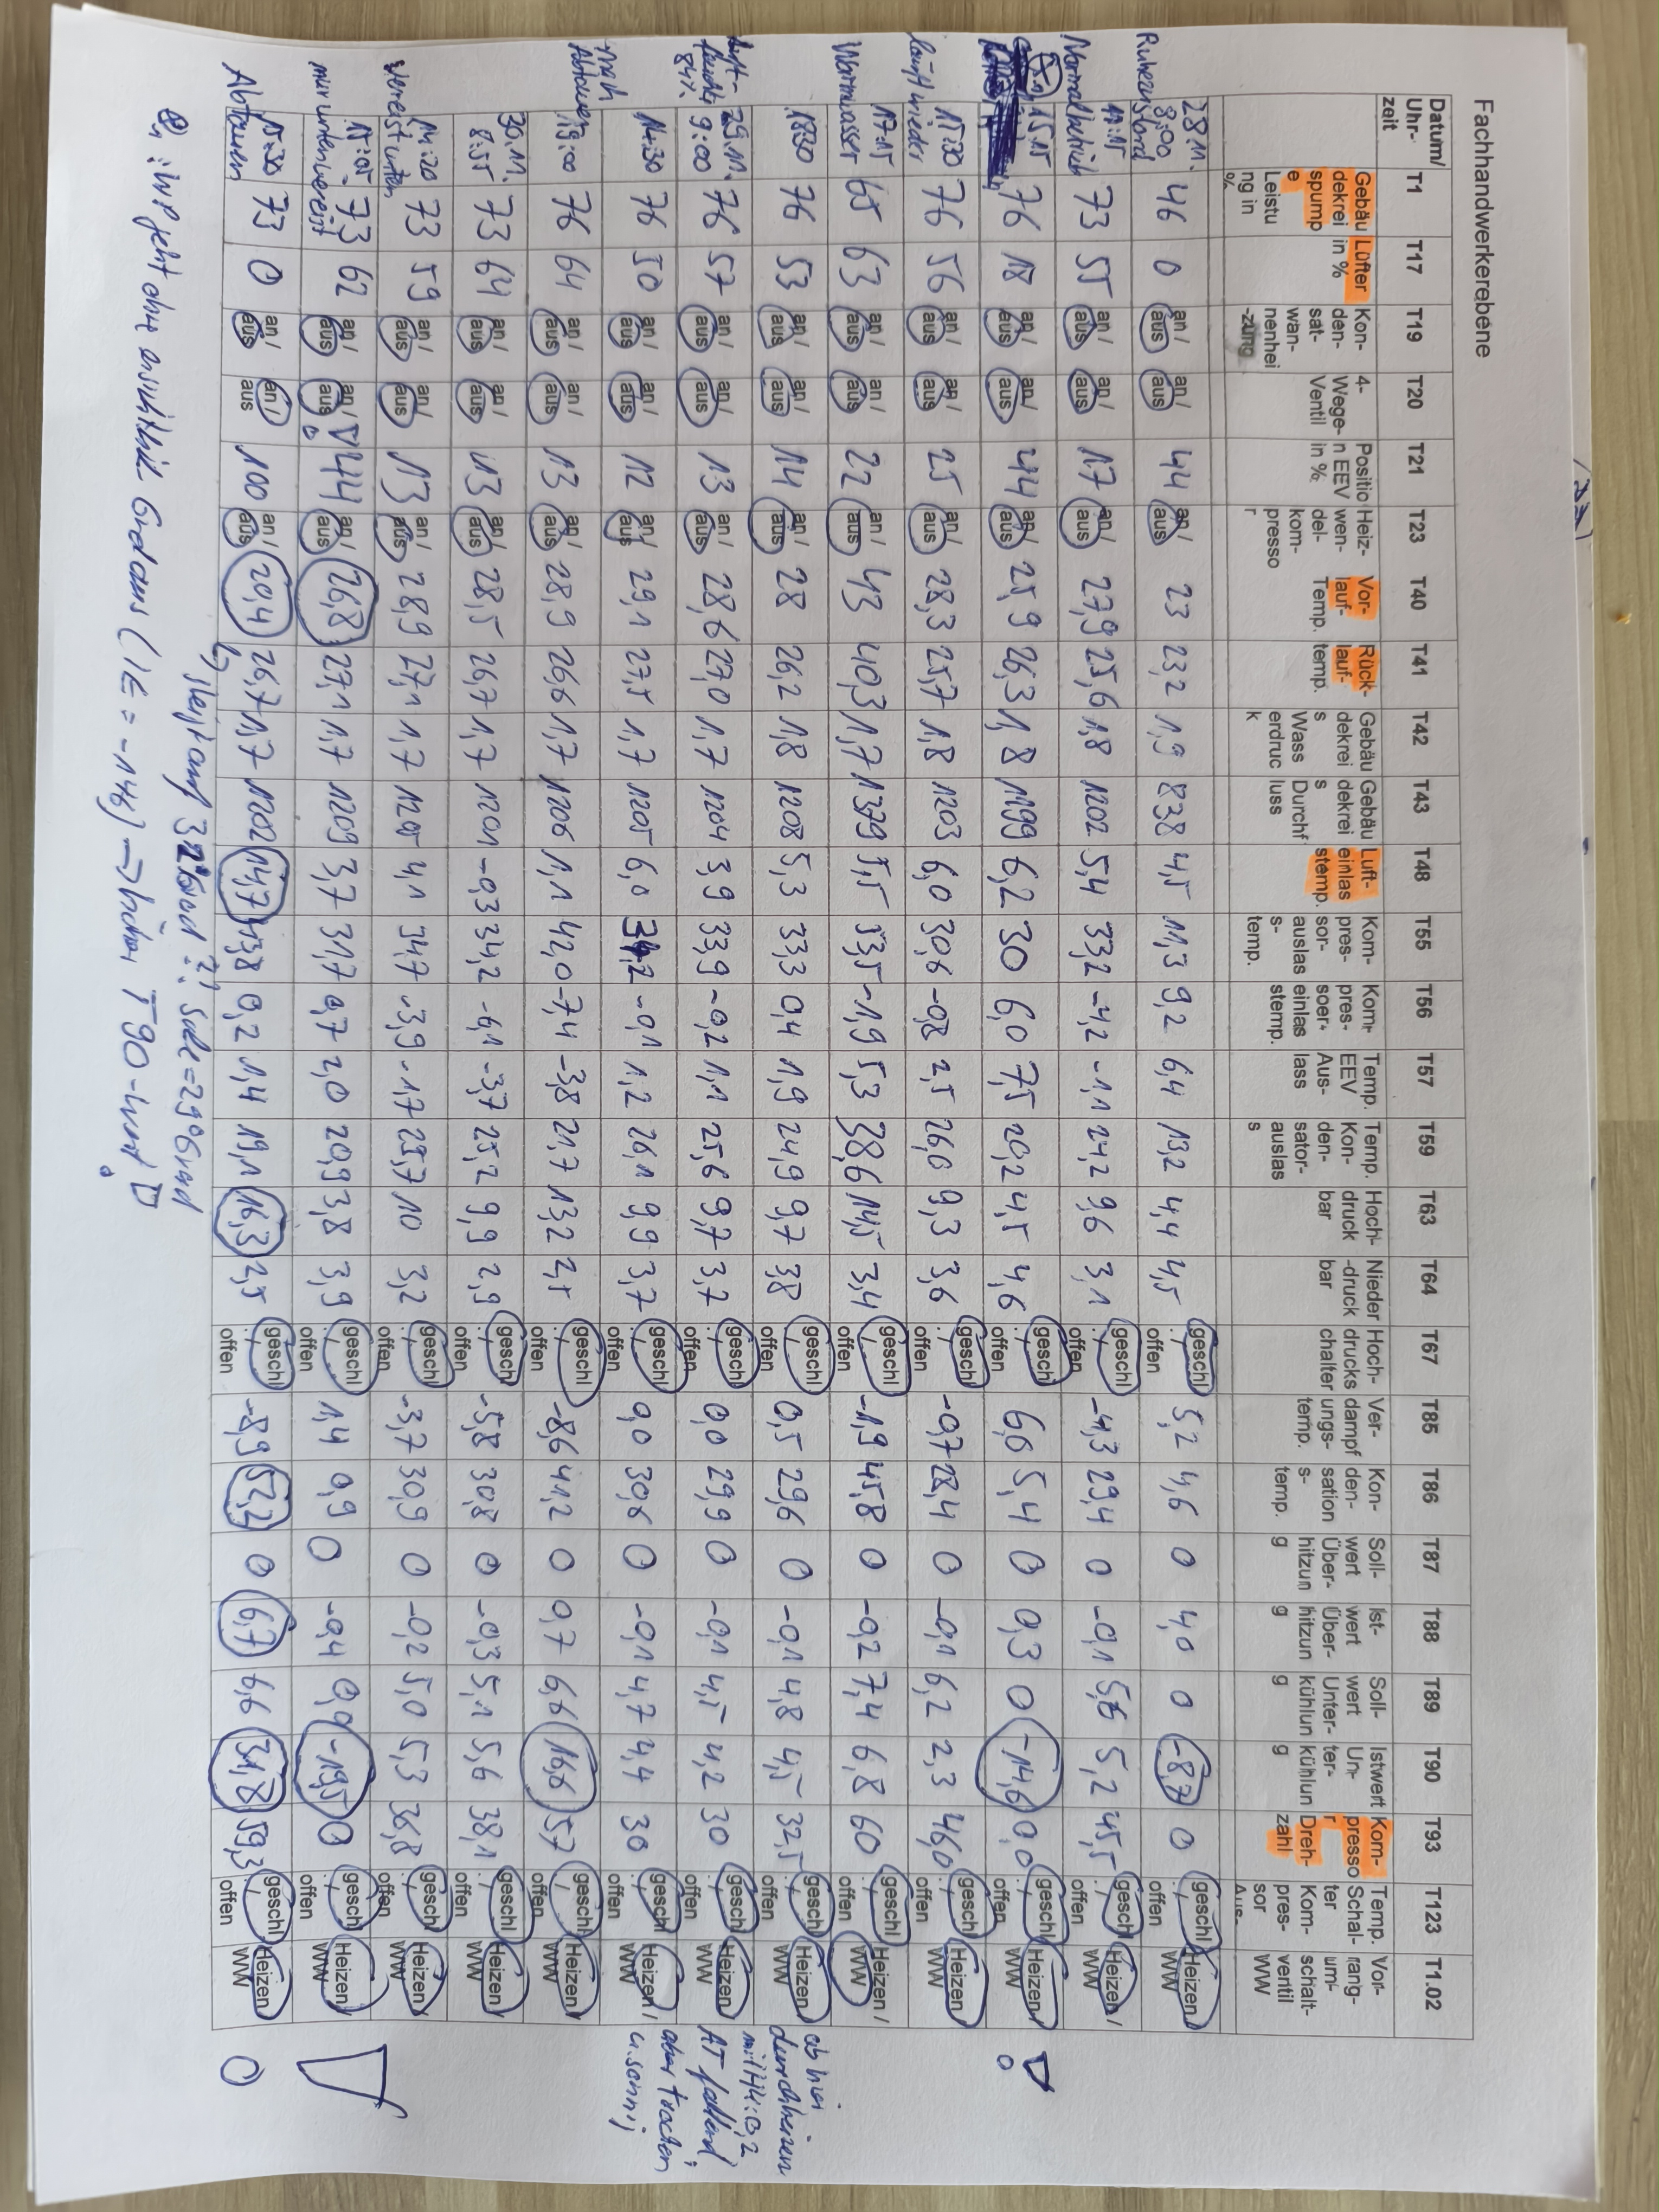 Fachhandwerkerebene
Datum/ Uhr-zeit | T1 | T17 | T19 | T20 | T21 | T23 | T40 | T41 | T42 | T43 | T48 | T55 | T56 | T57 | T59 | T63 | T64 | T67 | T85 | T86 | T87 | T88 | T89 | T90 | T93 | T123 | T1.02
Gebäu dekrei spump e Leistu ng in % | Lüfter in % | Kon-den-sat-wan-nenhei -zung | 4-Wege-Ventil | Positio n EEV in % | Heiz-wen-del-kom-presso r | Vor-lauf-Temp. | Rück-lauf-temp. | Gebäu dekrei s Wass erdruc k | Gebäu dekrei s Durchf luss | Luft-einlas stemp. | Kom-pres-sor-auslas s-temp. | Kom-pres-soer-einlas stemp. | Temp. EEV Aus-lass | Temp. Kon-den-sator-auslas s | Hoch-druck bar | Nieder -druck bar | Hoch-drucks chalter | Ver-dampf ungs-temp. | Kon-den-sation s-temp. | Soll-wert Über-hitzun g | Ist-wert Über-hitzun g | Soll-wert Unter-kühlun g | Istwert Un-ter-kühlun g | Kom-presso r Dreh-zahl | Temp. Schal-ter Kom-pres-sor Aus- | Vor-rang-um-schalt-ventil WW
28.11. 8:00 Ruhezustand | 46 | 0 | an / aus | an / aus | 44 | an / aus | 23 | 23,2 | 1,9 | 838 | 4,5 | 11,3 | 9,2 | 6,4 | 13,2 | 4,4 | 4,5 | geschl ./ offen | 5,2 | 4,6 | 0 | 4,0 | 0 | -8,7 | 0 | geschl ./ offen | Heizen / WW
11:15 Normalbetrieb | 73 | 55 | an / aus | an / aus | 17 | an / aus | 27,9 | 25,6 | 1,8 | 1202 | 5,4 | 33,2 | -4,2 | -1,1 | 24,2 | 9,6 | 3,1 | geschl ./ offen | -4,3 | 29,4 | 0 | -0,1 | 5,6 | 5,2 | 45,5 | geschl ./ offen | Heizen / WW
15:15 | 76 | 18 | an / aus | an / aus | 44 | an / aus | 25,9 | 26,3 | 1,8 | 1199 | 6,2 | 30 | 6,0 | 7,5 | 20,2 | 4,5 | 4,6 | geschl ./ offen | 6,0 | 5,4 | 0 | 0,3 | 0 | -14,6 | 0,0 | geschl ./ offen | Heizen / WW
15:30 läuft wieder | 76 | 56 | an / aus | an / aus | 25 | an / aus | 28,3 | 25,7 | 1,8 | 1203 | 6,0 | 30,6 | -0,8 | 2,5 | 26,0 | 9,3 | 3,6 | geschl ./ offen | -0,7 | 28,4 | 0 | -0,1 | 6,2 | 2,3 | 46,0 | geschl ./ offen | Heizen / WW
17:15 Warmwasser | 65 | 63 | an / aus | an / aus | 22 | an / aus | 43 | 40,3 | 1,7 | 1379 | 5,5 | 53,5 | -1,9 | 5,3 | 38,6 | 14,5 | 3,4 | geschl ./ offen | -1,9 | 45,8 | 0 | -0,2 | 7,4 | 6,8 | 60 | geschl ./ offen | Heizen / WW
18:30 | 76 | 53 | an / aus | an / aus | 14 | an / aus | 28 | 26,2 | 1,8 | 1208 | 5,3 | 33,3 | 0,4 | 1,9 | 24,9 | 9,7 | 3,8 | geschl ./ offen | 0,5 | 29,6 | 0 | -0,1 | 4,8 | 4,5 | 32,5 | geschl ./ offen | Heizen / WW | ab hier durchheizen mit HK: 0,2
29.11. 9:00 Luft-feuchte 84% | 76 | 57 | an / aus | an / aus | 13 | an / aus | 28,6 | 27,0 | 1,7 | 1204 | 3,9 | 33,9 | -0,2 | 1,1 | 25,6 | 9,7 | 3,7 | geschl ./ offen | 0,0 | 29,9 | 0 | -0,1 | 4,5 | 4,2 | 30 | geschl ./ offen | Heizen / WW | AT fallend,
14:30 | 76 | 50 | an / aus | an / aus | 12 | an / aus | 29,1 | 27,5 | 1,7 | 1205 | 6,0 | 34,2 | -0,1 | 1,2 | 26,1 | 9,9 | 3,7 | geschl ./ offen | 0,0 | 30,6 | 0 | -0,1 | 4,7 | 4,4 | 30 | geschl ./ offen | Heizen / WW | aber trocken u. sonnig
19:00 nach Abtauen | 76 | 64 | an / aus | an / aus | 13 | an / aus | 28,9 | 26,6 | 1,7 | 1206 | 1,1 | 42,0 | -7,4 | -3,8 | 21,7 | 13,2 | 2,5 | geschl ./ offen | -8,6 | 41,2 | 0 | 0,7 | 6,6 | 16,6 | 57 | geschl ./ offen | Heizen / WW
30.11. 8:55 | 73 | 64 | an / aus | an / aus | 13 | an / aus | 28,5 | 26,7 | 1,7 | 1201 | -0,3 | 34,2 | -6,1 | -3,7 | 25,2 | 9,9 | 2,9 | geschl ./ offen | -5,8 | 30,8 | 0 | -0,3 | 5,1 | 5,6 | 38,1 | geschl ./ offen | Heizen / WW
14:20 vereist unten | 73 | 59 | an / aus | an / aus | 13 | an / aus | 28,9 | 27,1 | 1,7 | 1205 | 4,1 | 34,7 | -3,9 | -1,7 | 25,7 | 10 | 3,2 | geschl ./ offen | -3,7 | 30,9 | 0 | -0,2 | 5,0 | 5,3 | 36,8 | geschl ./ offen | Heizen / WW
15:05 nur unten vereist | 73 | 62 | an / aus | an / aus ! | 44 | an / aus | 26,8 | 27,1 | 1,7 | 1209 | 3,7 | 31,7 | 0,7 | 2,0 | 20,9 | 3,8 | 3,9 | geschl ./ offen | 1,4 | 0,9 | 0 | -0,4 | 0,0 | -19,5 | 0 | geschl ./ offen | Heizen / WW !
15:30 Abtauen | 73 | 0 | an / aus | an / aus | 100 | an / aus | 20,4 | 26,7 | 1,7 | 1202 | 14,7 | 43,8 | 0,2 | 1,4 | 19,1 | 16,3 | 2,5 | geschl ./ offen | -8,9 | 52,2 | 0 | 6,7 | 6,6 | 34,8 | 59,3 | geschl ./ offen | Heizen / WW
↳ steigt auf 32 Grad ?! Solltemp = 29 Grad
: WP geht ohne ersichtlichen Grund aus (IE = -146) → hoher T90-Wert!